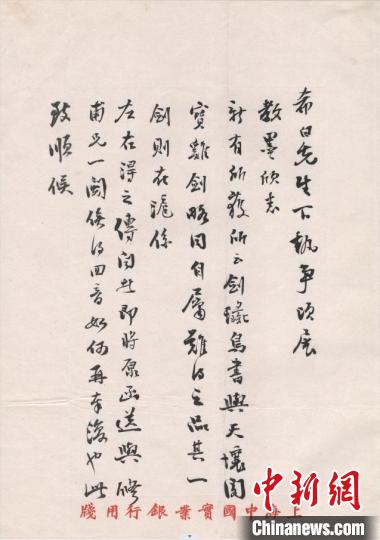 希白先生下執事頃展
教墨欣悉
新有所獲所云劍鳥書與天壤閣
寶雞劍略同自屬難得之品其一
劍則在滬係
左右得之傳聞即將原函送與脩
甫兄一閱俟得回音如何再奉復也此
致順候
上海中國實業銀行用牋
中新网
Chinanews.com